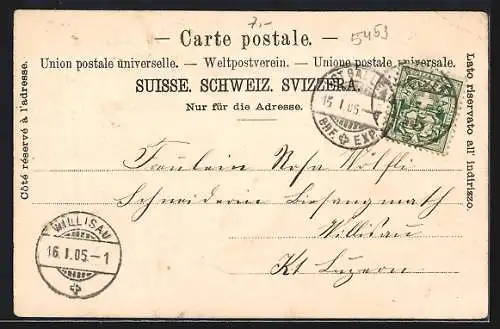 7.-
5463
- Carte postale. -
Union postale universelle. - Weltpostverein. - Unione postale universale.
SUISSE. SCHWEIZ. SVIZZERA.
Nur für die Adresse.
Côté réservé à l'adresse.
Lato riservato all' indirizzo.
ST. GALLEN
15. I. 05.
BRF. EXP.
Fräulein Rosa Wölfli
Schneiderin
Willisau
Kt Luzern
WILLISAU
16. I. 05.-1